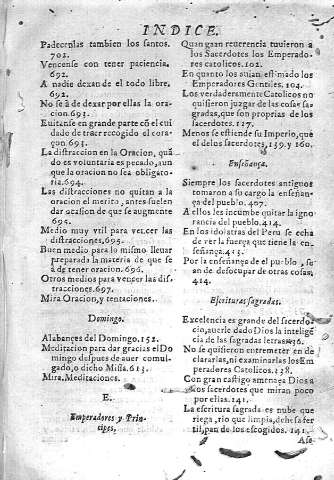 INDICE.
Padecenlas tambien los santos.
702.
Vencense con tener paciencia.
692.
A nadie dexan de el todo libre.
692.
No se à de dexar por ellas la ora-
cion.693.
Euitanse en grande parte cõ el cui
dado de traer recogido el cora-
çon.693.
La distraccion en la Oracion, quã
do es voluntaria es pecado, aun
que la oracion no sea obligato-
ria.694.
Las distracciones no quitan a la
oracion el merito, antes suelen
dar ocasion de que se augmente
695.
Medio muy vtil para vencer las
distracciones, 695.
Buen medio para lo mismo lleuar
preparada la materia de que se
à de tener oracion.696.
Otros medios para vencer las dis-
tracciones.697.
Mira Oracion, y tentaciones.
Domingo.
Alabançes del Domingo.152.
Meditacion para dar gracias el Do
mingo despues de auer comul-
gado, o dicho Missa.613.
Mira, Meditaciones.
E.
Emperadores y Prin-
cipes,
Quan gran reuerencia tuuieron a
los Sacerdotes los Emperado-
res catolicos.102.
En quanto los auian estimado los
Emperadores Gentiles.104.
Los verdaderamente Catolicos no
quisieron juzgar de las cosas sa-
gradas, que son proprias de los
sacerdotes.127.
Menos se estiende su Imperio, que
el de los sacerdotes, 159. y 160.
Enseñança.
Siempre los sacerdotes antiguos
tomaron a su cargo la enseñan-
ça del pueblo.407.
A ellos les incumbe quitar la igno-
rancia del pueblo.413.
En los idolatras del Peru se echa
de ver la fuerça que tiene la en-
señança.413.
Por la enseñança de el pueblo, se an
de desocupar de otras cosas.
414.
Escrituras sagradas.
Excelencia es grande del sacerdo-
cio, auerle dado Dios la inteligẽ
cia de las sagradas letras.36.
No se quisieron entremeter en de
clararlas, ni examinarlas los Em
peradores Catolicos.128.
Con gran castigo amenaça Dios a
los sacerdotes que miran poco
por ellas.141.
La escritura sagrada es nube que
riega, rio que limpia, dehesa fer
til, pan de los escogidos.141.